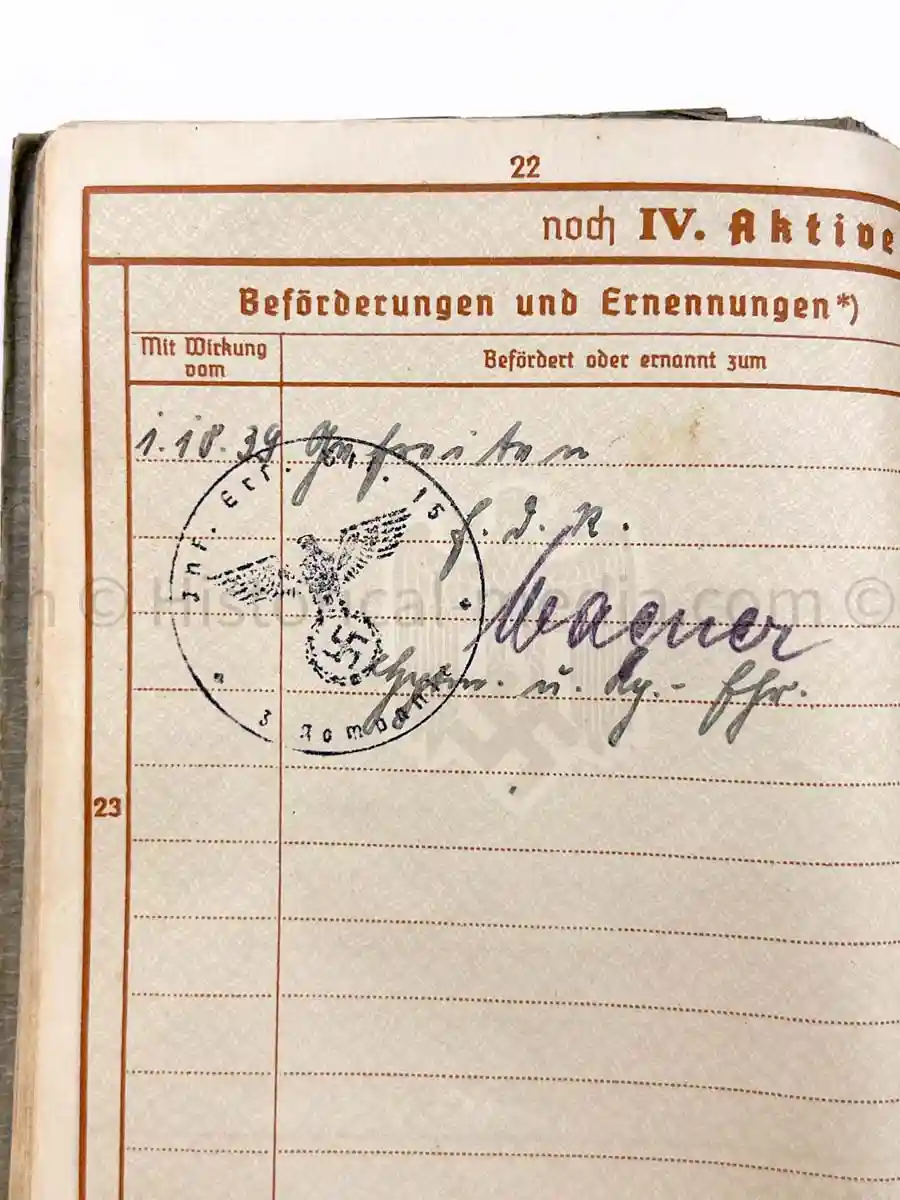 22
noch IV. Aktive
Beförderungen und Ernennungen*)
Mit Wirkung
vom
Befördert oder ernannt zum
1.10.39 Gefreiten
Inf. Erf. Btl. 15
f. d. R.
© Historical-media.com ©
Wagner
Hptm. u. Kp.- Fhr.
3 Kompanie
23